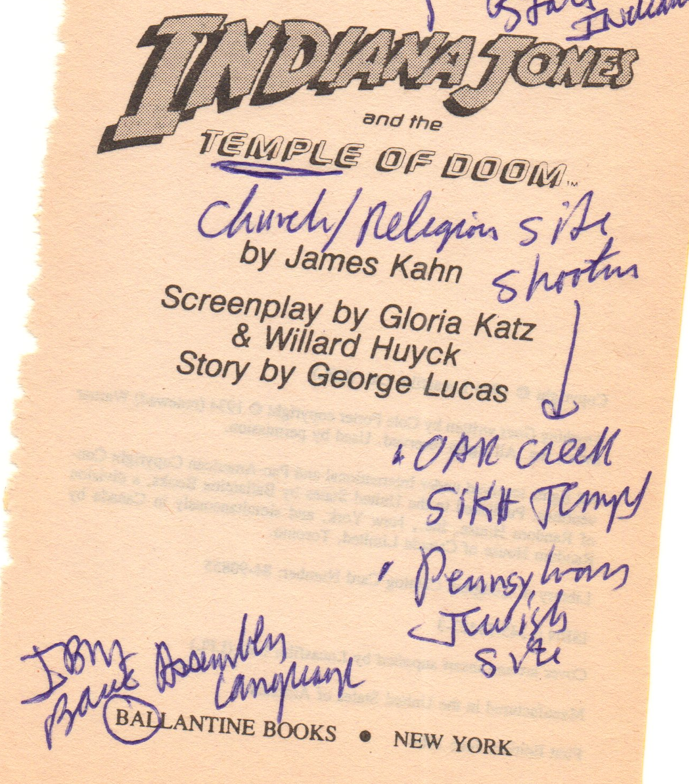 INDIANA JONES
and the
TEMPLE OF DOOM™
Church/Religion site
by James Kahn
Shooting
Screenplay by Gloria Katz
& Willard Huyck
Story by George Lucas
OAK Creek
SIKH Temple
Pennsylvania
Jewish
Site
IBM
Assembly
Language
BALLANTINE BOOKS • NEW YORK